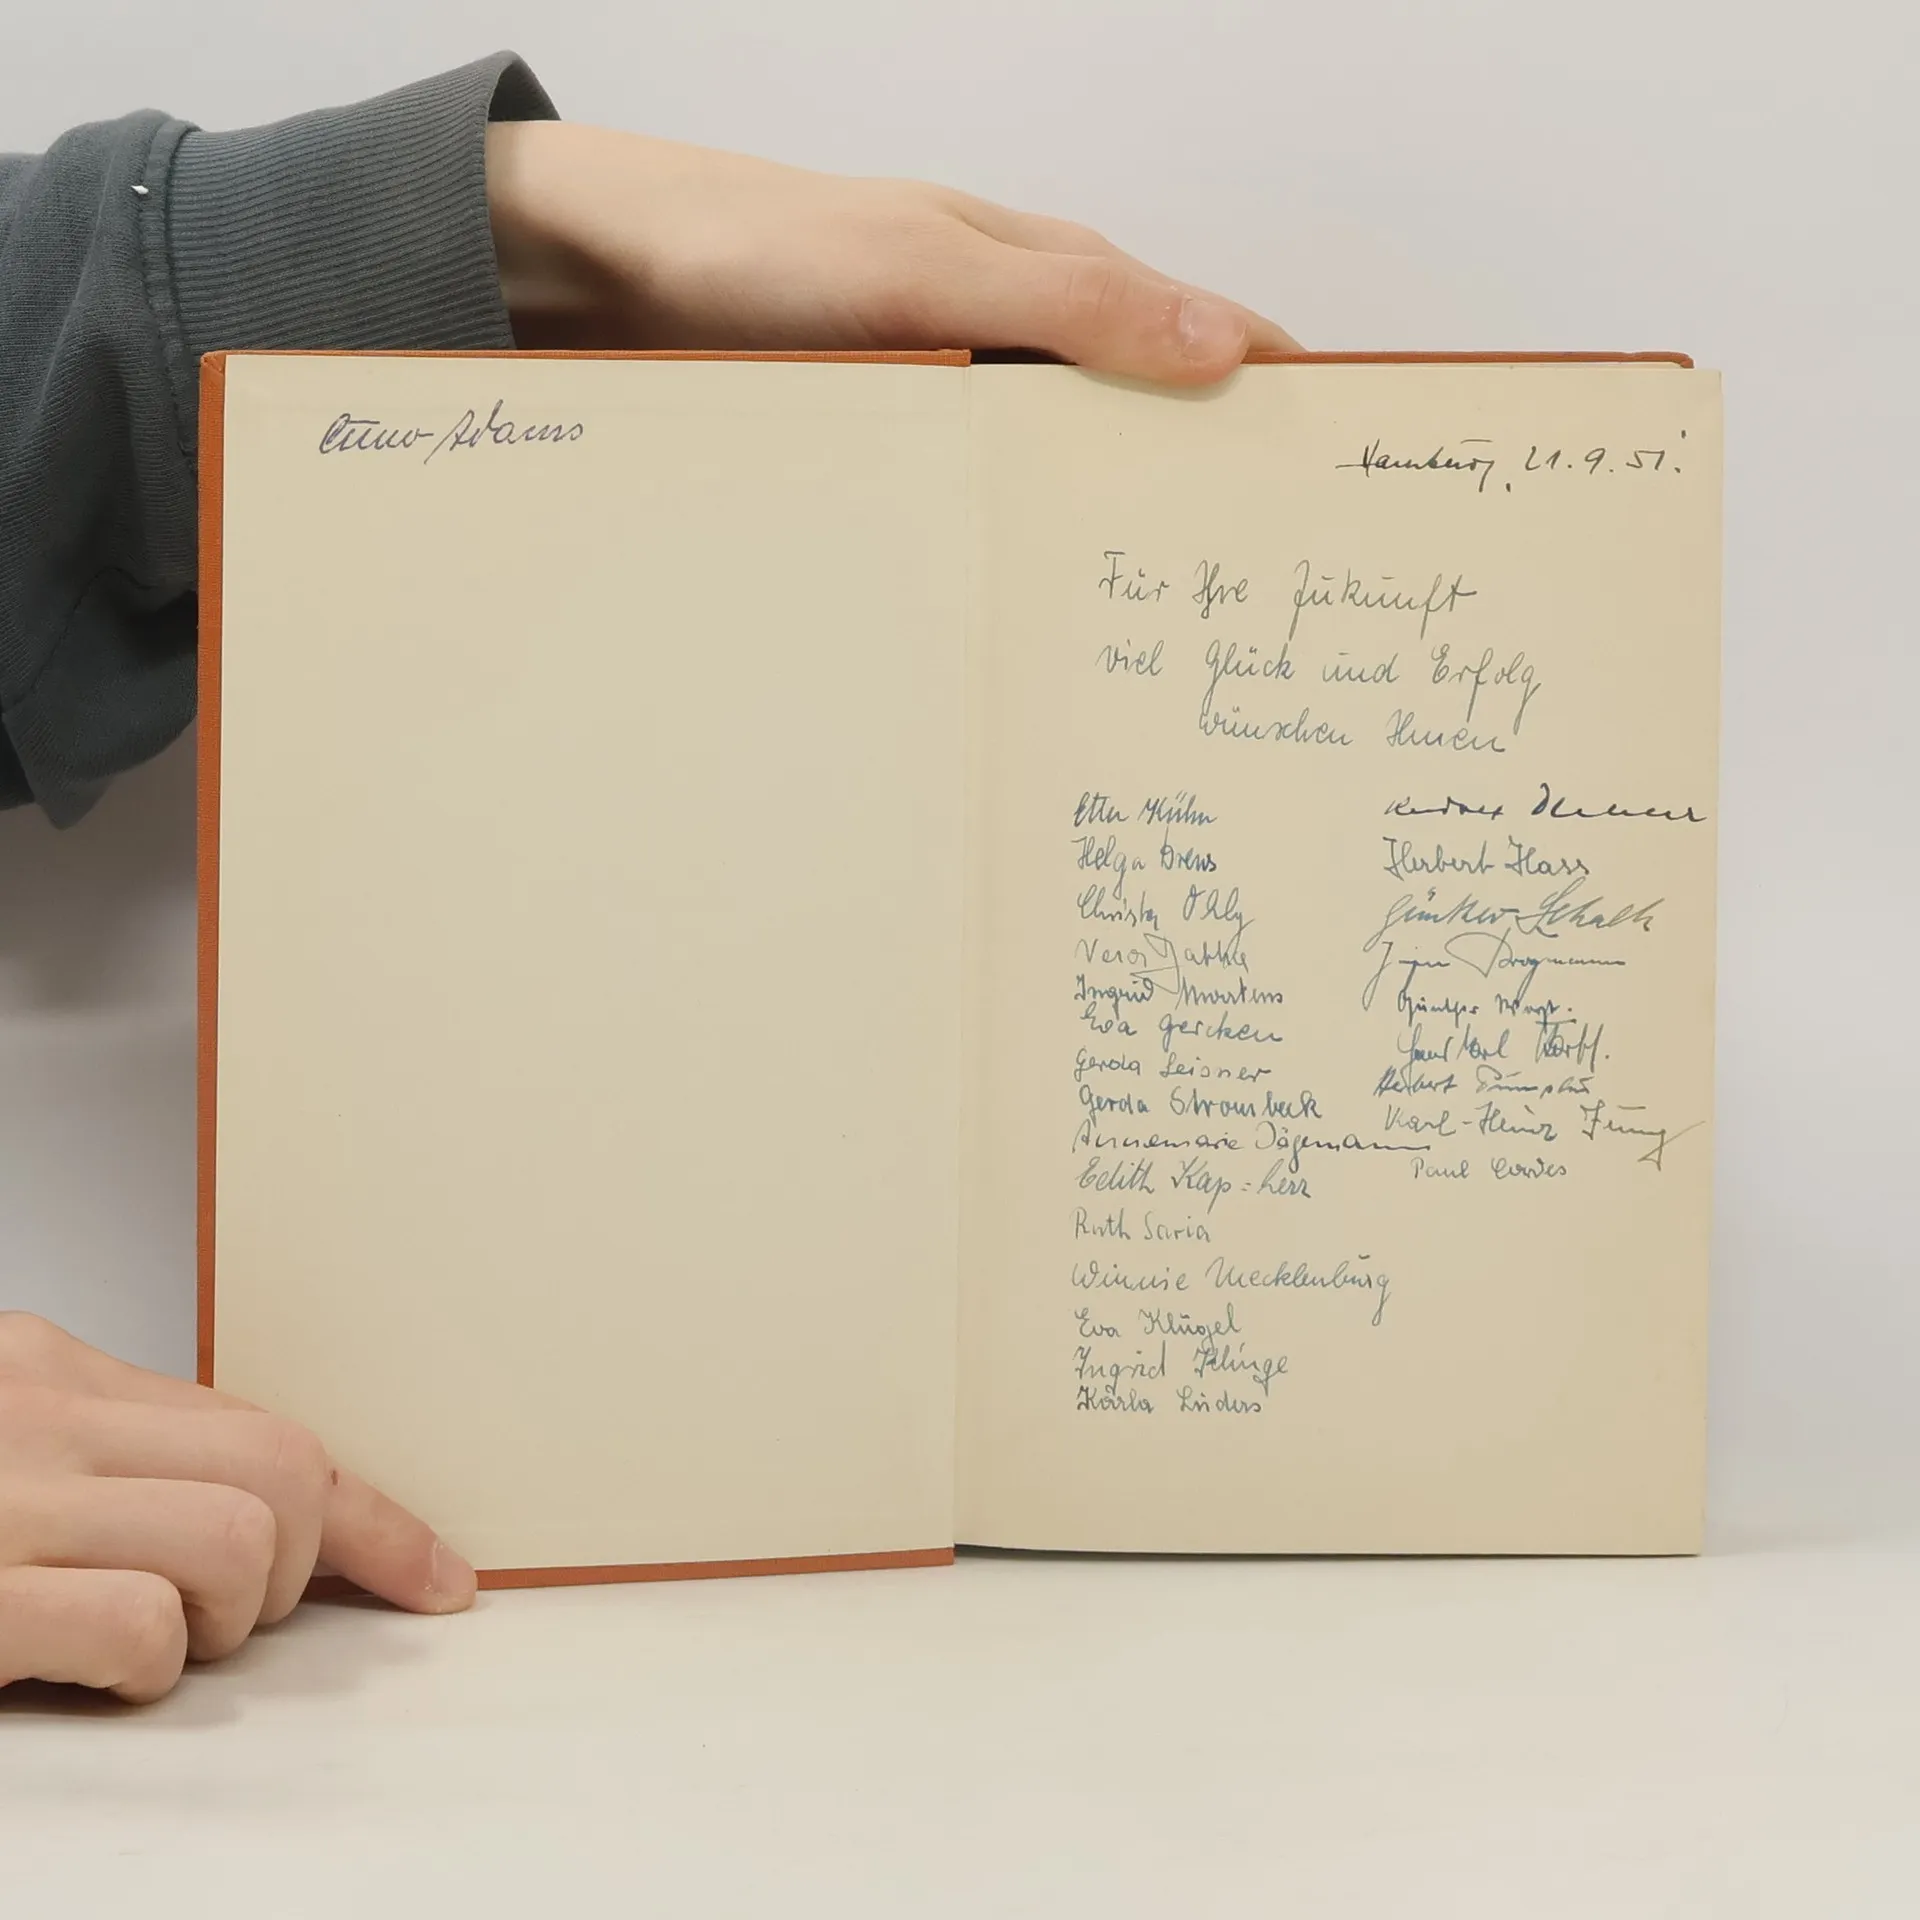 Cuno Adams
Hamburg, 21.9.51.
Für Ihre Zukunft
viel Glück und Erfolg
wünschen Ihnen
Kühn
Helga Drews
Christa Ohly
Vera
Ingrid Martens
Eva Gercken
Gerda Leisner
Gerda Strombeck
Annemarie Jägemann
Edith Kap=herr
Ruth Saria
Winnie Mecklenburg
Eva Klügel
Ingrid Klinge
Karla Lüders
Herbert Hass
Günther Schalk
Brogmann
Günther
Hans Karl Korff.
Herbert
Karl-Heinz Jung
Paul Cordes